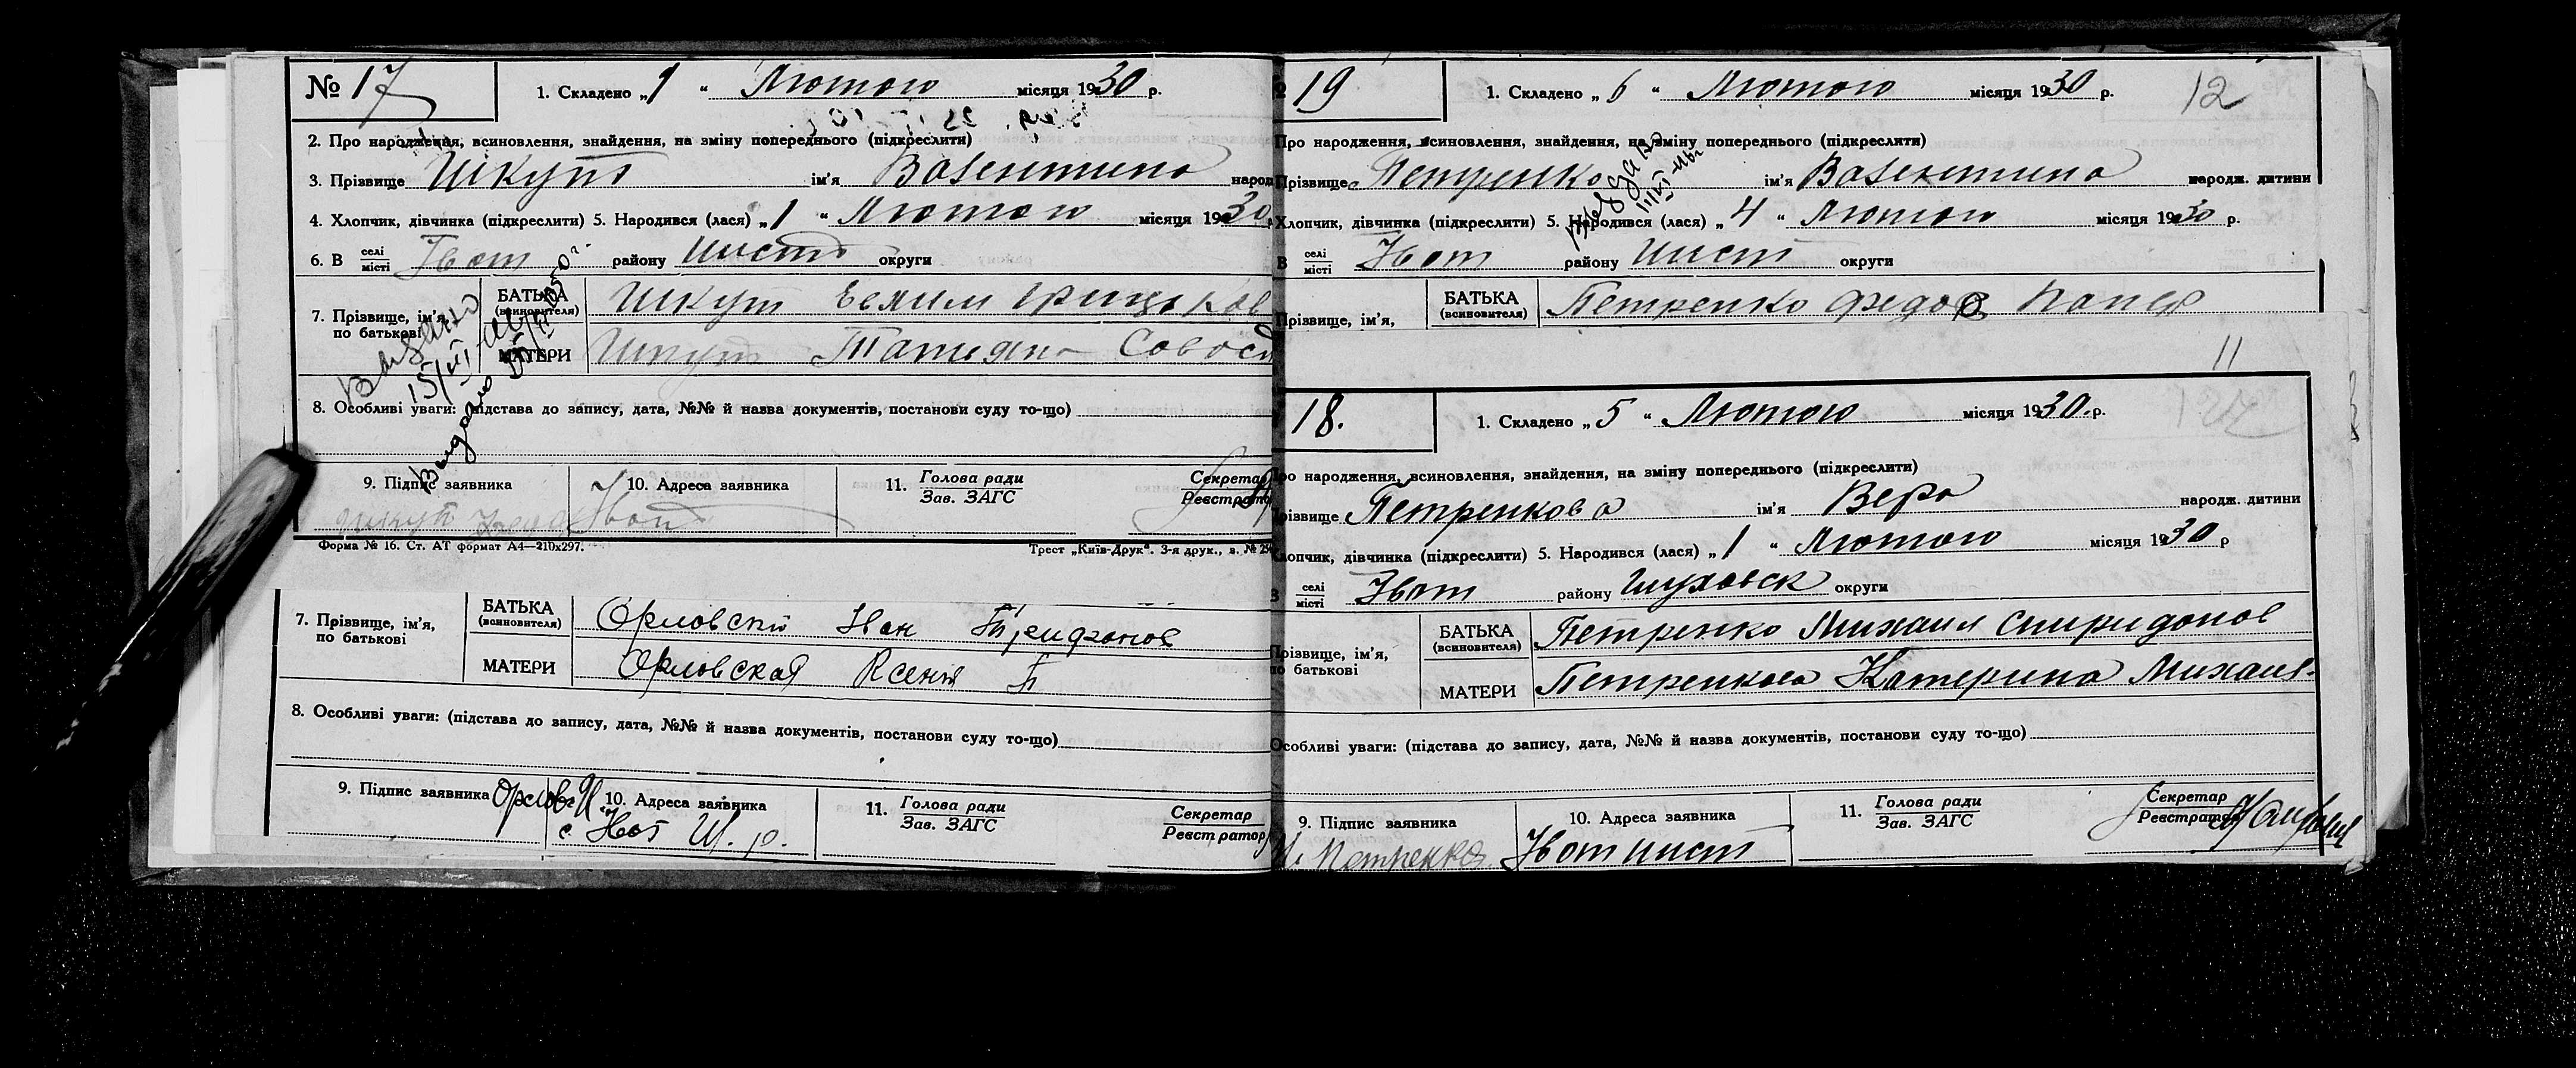 № 17
1. Складено „1“ Лютого місяця 1930 р.
2. Про народження, всиновлення, знайдення, на зміну попереднього (підкреслити)
3. Прізвище Шкут ім'я Валентина народ
4. Хлопчик, дівчинка (підкреслити) 5. Народився (лася) „1“ Лютого місяця 1930
6. В селі місті району округи
7. Прізвище, ім'я, по батькові
БАТЬКА (всиновителя) Шкут
МАТЕРИ Шкут Татияна
Выдано
15/VI
Выдано
8. Особливі уваги: (підстава до запису, дата, №№ й назва документів, постанови суду то-що)
9. Підпис заявника 10. Адреса заявника 11. Голова ради Зав. ЗАГС Секретар Реєстратор
Форма № 16. Ст. АТ формат А4—210х297. Трест „Київ-Друк“. 3-я друк., з. №
7. Прізвище, ім'я, по батькові
БАТЬКА (всиновителя) Орловский Иван Трифонов
МАТЕРИ Орловская Ксения
8. Особливі уваги: (підстава до запису, дата, №№ й назва документів, постанови суду то-що)
9. Підпис заявника 10. Адреса заявника 11. Голова ради Зав. ЗАГС Секретар Реєстратор
с. Ш. р.
19
1. Складено „6“ Лютого місяця 1930 р.
12
Про народження, всиновлення, знайдення, на зміну попереднього (підкреслити)
Прізвище Петренко ім'я Валентина народж. дитини
Хлопчик, дівчинка (підкреслити) 5. Народився (лася) „4“ Лютого місяця 1930 р.
В селі місті району округи
Прізвище, ім'я,
БАТЬКА (всиновителя) Петренко Федор
11
18.
1. Складено „5“ Лютого місяця 1930. р.
Про народження, всиновлення, знайдення, на зміну попереднього (підкреслити)
Прізвище Петренкова ім'я Вера народж. дитини
Хлопчик, дівчинка (підкреслити) 5. Народився (лася) „1“ Лютого місяця 1930 р
В селі місті району округи
Прізвище, ім'я, по батькові
БАТЬКА (всиновителя) Петренко Михаил Спиридонов
МАТЕРИ Петренкова Катерина Михаил.
Особливі уваги: (підстава до запису, дата, №№ й назва документів, постанови суду то-що)
9. Підпис заявника 10. Адреса заявника 11. Голова ради Зав. ЗАГС Секретар Реєстратор
Петренко